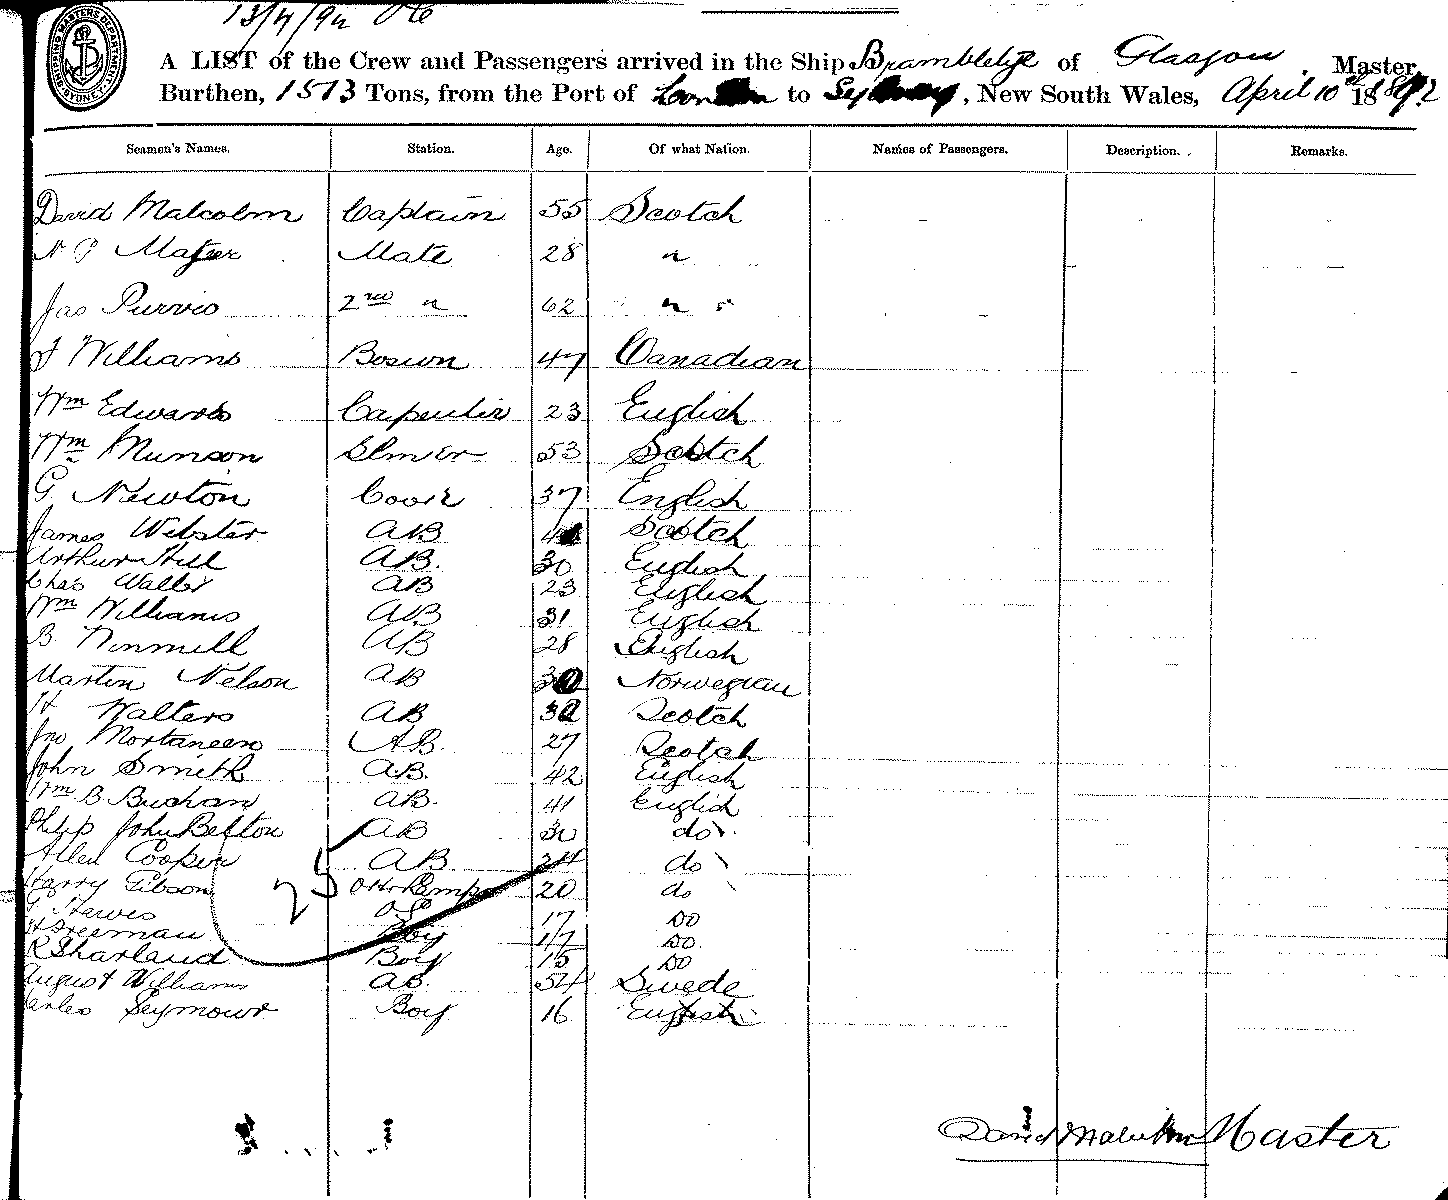 13/4/92
SHIPPING MASTER'S DEPARTMENT SYDNEY
A LIST of the Crew and Passengers arrived in the Ship Brambletye of Glasgow, Master,
Burthen, 1573 Tons, from the Port of London to Sydney, New South Wales, April 10th 1892
Seamen's Names. Station. Age. Of what Nation. Names of Passengers. Description. Remarks.
David Malcolm Captain 55 Scotch
Mate 28 "
Jas Purvis 2nd " 62 "
J Williams Bosun 47 Canadian
Wm Edwards Carpenter 23 English
Wm Munson 53 Scotch
G. Newton Cook 37 English
James Webster AB Scotch
Arthur Hill AB. 30 English
Chas Waller AB 23 English
Wm Williams AB 31 English
B. AB 28 English
Martin Nelson AB 30 Norwegian
H Walters AB Scotch
Jno Mortaneen AB. 27 Scotch
John Smith AB. 42 English
Wm B. Buchan AB. 41 English
Philip John Belton AB 30 do
Allen Cooper AB. 24 do
Harry Gibson 20 do
Hawes OS 17 Do
H Freeman Boy 17 Do
R Sharland Boy 15 Do
August Williams AB. 54 Swede
Charles Seymour Boy 16 English
25
David Malcolm Master